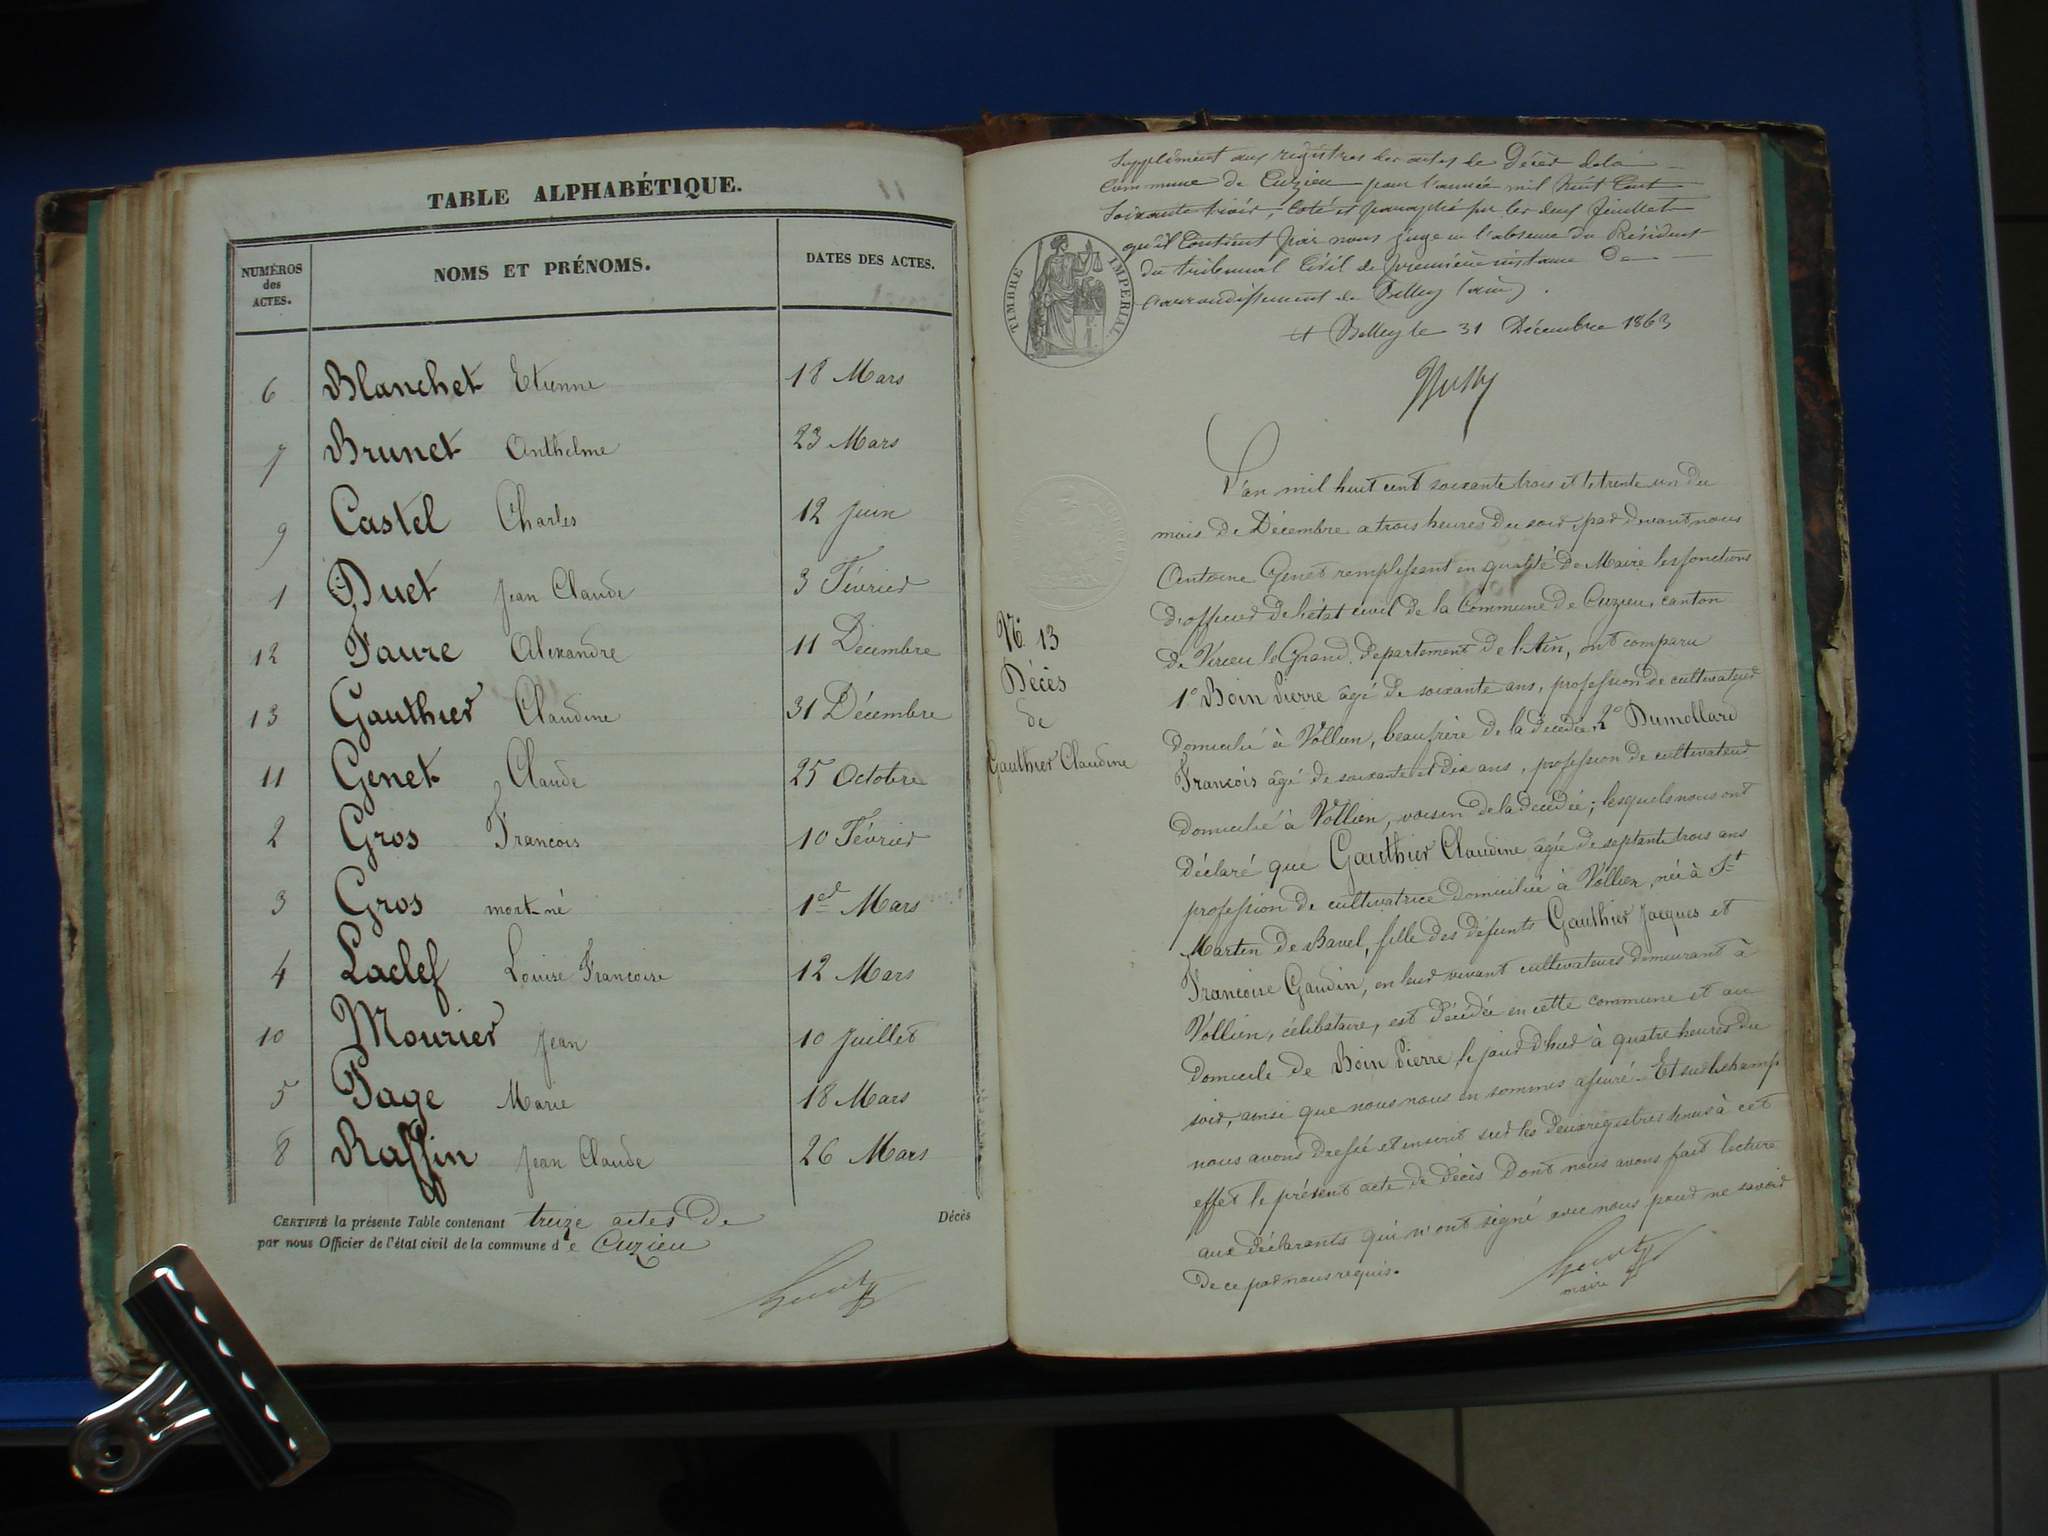 TABLE ALPHABÉTIQUE.
NUMÉROS des ACTES.
NOMS ET PRÉNOMS.
DATES DES ACTES.
6 Blanchet Etienne 18 Mars
7 Brunet Anthelme 23 Mars
9 Castel Charles 12 Juin
1 Duet Jean Claude 3 Février
12 Faure Alexandre 11 Décembre
13 Gauthier Claudine 31 Décembre
11 Genet Claude 25 Octobre
2 Gros Francois 10 Février
3 Gros mort-né 1er Mars
4 Laclef Louise Francoise 12 Mars
10 Mourier Jean 10 Juillet
5 Page Marie 18 Mars
8 Raffin Jean Claude 26 Mars
CERTIFIÉ la présente Table contenant treize actes de Décès
par nous Officier de l'état civil de la commune de Cuzieu
Supplément aux registres des actes de Décès de la
Commune de Cuzieu pour l'année mil huit Cent
Soixante trois, Coté et paraphé sur les deux feuillets
qu'il Contient par nous juge en l'absence du Président
du tribunal Civil de première instance De
l'arrondissement de Belley (ain).
Belley le 31 Décembre 1863
TIMBRE IMPÉRIAL
L'an mil huit cent soixante trois et le trente un du
mois de Décembre a trois heures du soir, par devant nous
Antoine Genet remplissant en qualité de Maire les fonctions
d'officier de l'état civil de la Commune de Cuzieu, canton
de Virieu le Grand, departement de l'Ain, ont comparu
1º Boin Pierre âgé de soixante ans, profession de cultivateur
domicilié à Vollien, beaufrère de la décédée, 2º Dumollard
Francois âgé de soixante et dix ans, profession de cultivateur
domicilié à Vollien, voisin de la décédée; lesquels nous ont
déclaré que Gauthier Claudine âgée de septante trois ans
profession de cultivatrice domiciliée à Vollien, née à St
Martin de Bavel, fille des défunts Gauthier Jacques et
Francoise Gaudin, en leur vivant cultivateurs demeurant à
Vollien, célibataire, est décédée en cette commune et au
domicile de Boin Pierre, le jourd'hui à quatre heures du
soir, ainsi que nous nous en sommes assuré. Et sur le champ
nous avons dressé et inscrit sur les deux registres tenus à cet
effet le présent acte de décès dont nous avons fait lecture
aux déclarants qui n'ont signé avec nous pour ne savoir
de ce par nous requis.
maire
Nº 13
Décès
de
Gauthier Claudine